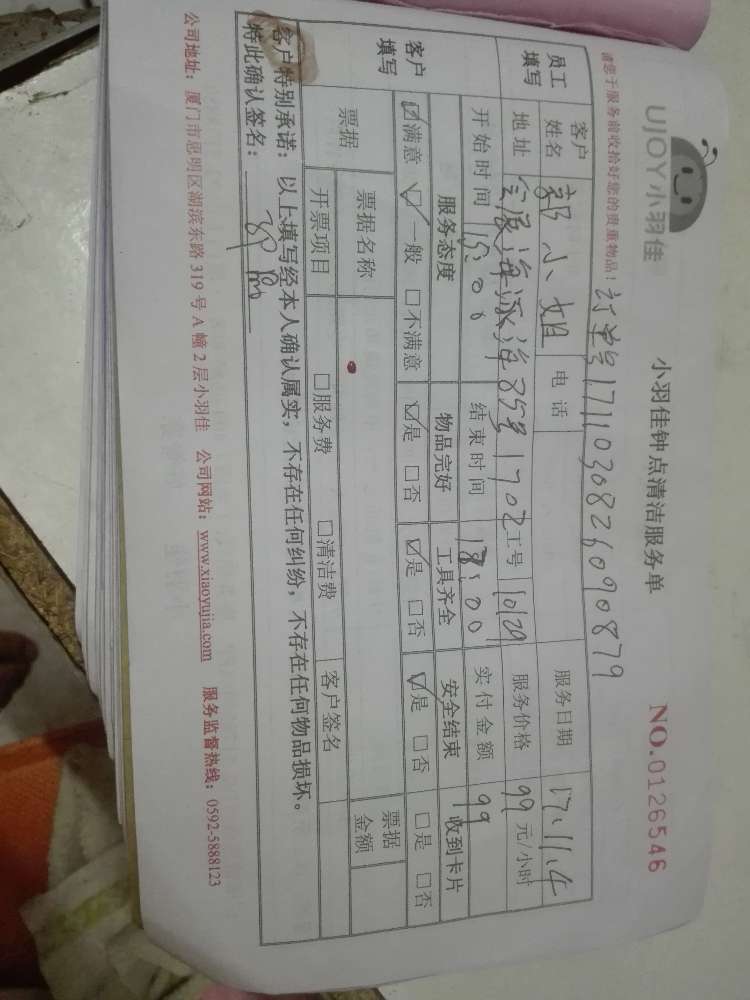 UJOY小羽佳
小羽佳钟点清洁服务单
NO.0126546
请您于服务前收拾好您的贵重物品!
订单号171103082609 0879
员工填写
客户姓名 郭小姐 电话 服务日期 17.11.4
地址 会展海泺海85号1702 工号 10129 服务价格 99元/小时
开始时间 15:00 结束时间 18:00 实付金额 99
客户填写
服务态度 物品完好 工具齐全 安全结束 收到卡片
☑满意 ☑一般 □不满意 ☑是 □否 ☑是 □否 ☑是 □否 □是 □否
票据 票据名称 票据金额
开票项目 □服务费 □清洁费 客户签名
客户特别承诺:以上填写经本人确认属实,不存在任何纠纷,不存在任何物品损坏。
特此确认签名:
公司地址:厦门市思明区湖滨东路319号A幢2层小羽佳 公司网站:www.xiaoyujia.com 服务监督热线:0592-5888123